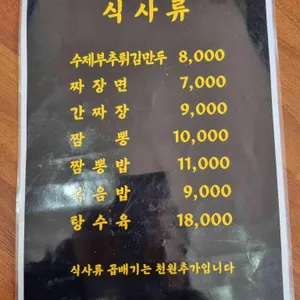 식사류
수제부추튀김만두 8,000
짜장면 7,000
간짜장 9,000
짬뽕 10,000
짬뽕밥 11,000
음밥 9,000
탕수육 18,000
식사류 곱배기는 천원추가입니다